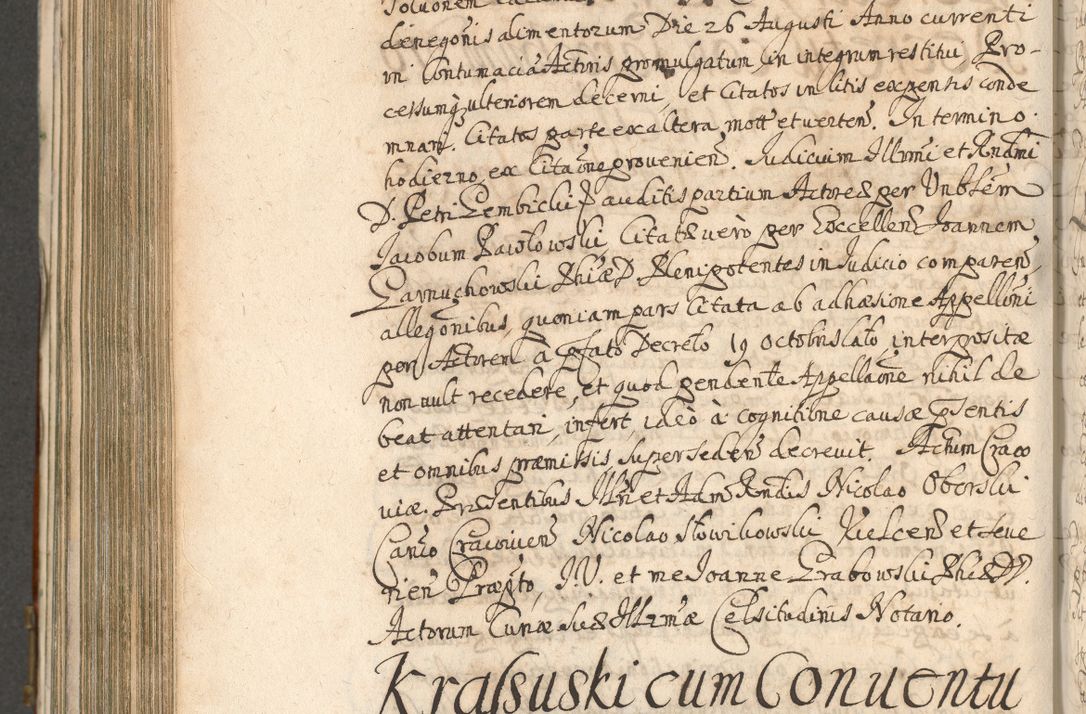 denegõnis alimentorum Die 26 Augusti Anno currenti
in Contumaciã Actoris promulgatum, in integrum restitui, Pro-
cessumq̃ ulteriorem decerni, et Citatos in litis expensis conde
mnari. Citatos parte ex altera mott et uerteñ. In termino
hodierno, ex Citaõne provenieñ. Judicium Illrmi et Rndmi
D. Petri Gembicki auditis partium Actore per Unblem
Jacobum Pawlowski Citatæ verò per Excellen Joannem
Garnuchowski Phiæ D. Plenipotentes in Judicio compareñ,
allegõnibus, quoniam pars Citata ab adhæsione Appellõni
per Actorem à pfato Decreto 19 octobris lato interpositæ
non vult recedere, et quod pendente Appellaõne nihil de
beat attentari, infert, ideò à cognitiõne causæ pſentis
et omnibus præmissis supersedeñ decrevit. Actum Craco
viæ. Præsentibus Illri et Adm Rndis Nicolao Oberski
Canco Cracovieñ Nicolao Słowikowski Kielceñ et Seve
rieñ Præpto, J.V. et me Joanne Grabowski Phiæ D.
Actorum Curiæ Suæ Illrmæ Celsitudinis Notario.
Krassuski cum Conuentu